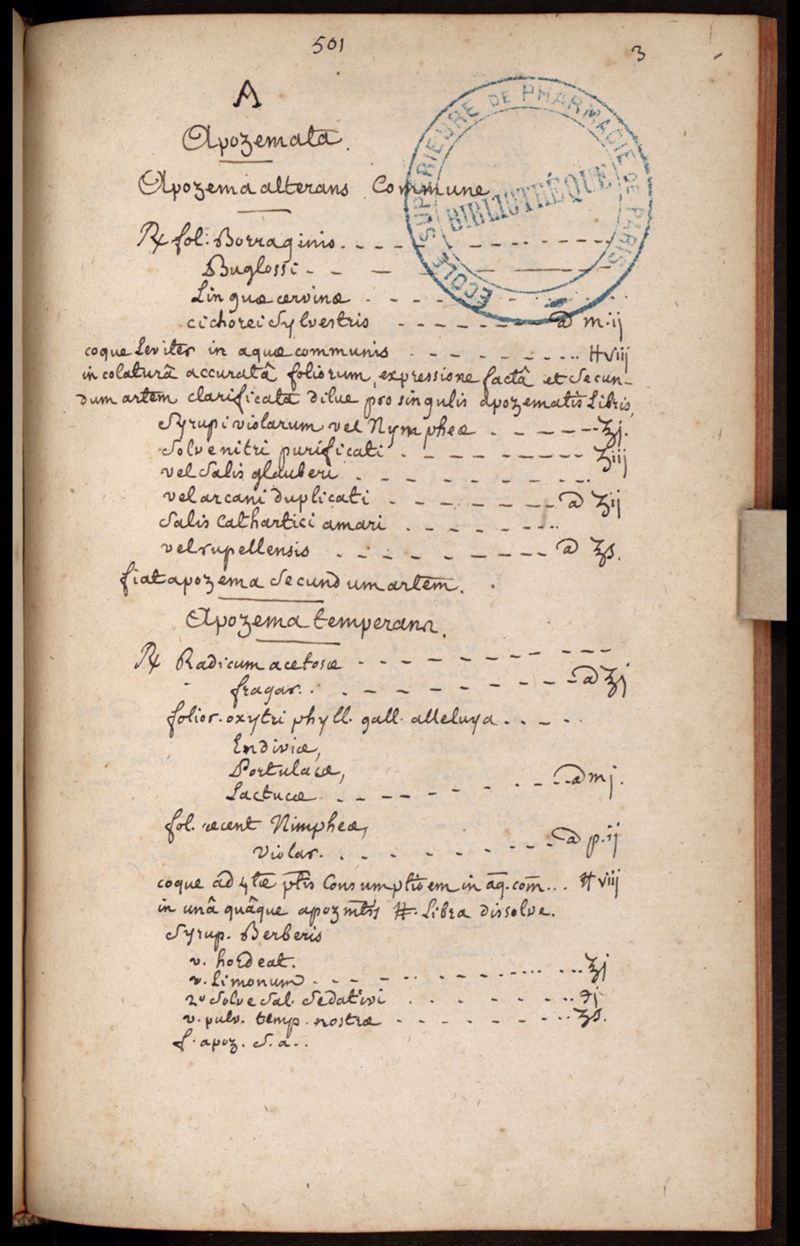 501
3
A
Apozemata.
Apozema alterans Commune
ECOLE SUPERIEURE DE PHARMACIE DE PARIS
BIBLIOTHÉQUE
℞ fol: Borraginis
Buglossi
Linguæ cervinæ
cichorei Sylvestris ā m.ij
coque Leviter in aquæ communis ℔viij
in colaturâ accuratâ foliorum, expressione factâ et Secun-
dum artem clarificatâ dilue pro singulis apozematis Libris,
Syrupi violarum vel Nympheæ ℥j.
Solve nitri purificati ʒiij
vel Salis glauberi
vel arcani duplicati ā ʒij
Salis Cathartici amari
vel rupellensis ā ℥s.
fiat apozema Secundum artem.
Apozema temperans.
℞ Radicum acetosæ
fragar. ā ℥j
folior. oxytri phyll. gall. alleluya
Endiviæ,
Portulacæ,
Lactucæ ā mj.
fol. recent Nimpheæ,
violar. ā p.ij
coque ad 4tæ ptis Consumptiōem in aq. com̄... ℔viij
in unâ quâque apozmtis ℔. Libra dissolve.
Syrup. Berberis
v. hordeat.
v. Limonum ℥j
2º Solve Sal. Sedativi ℈j
v. pulv. temp. nostræ ʒs.
f. apoz. S. a..